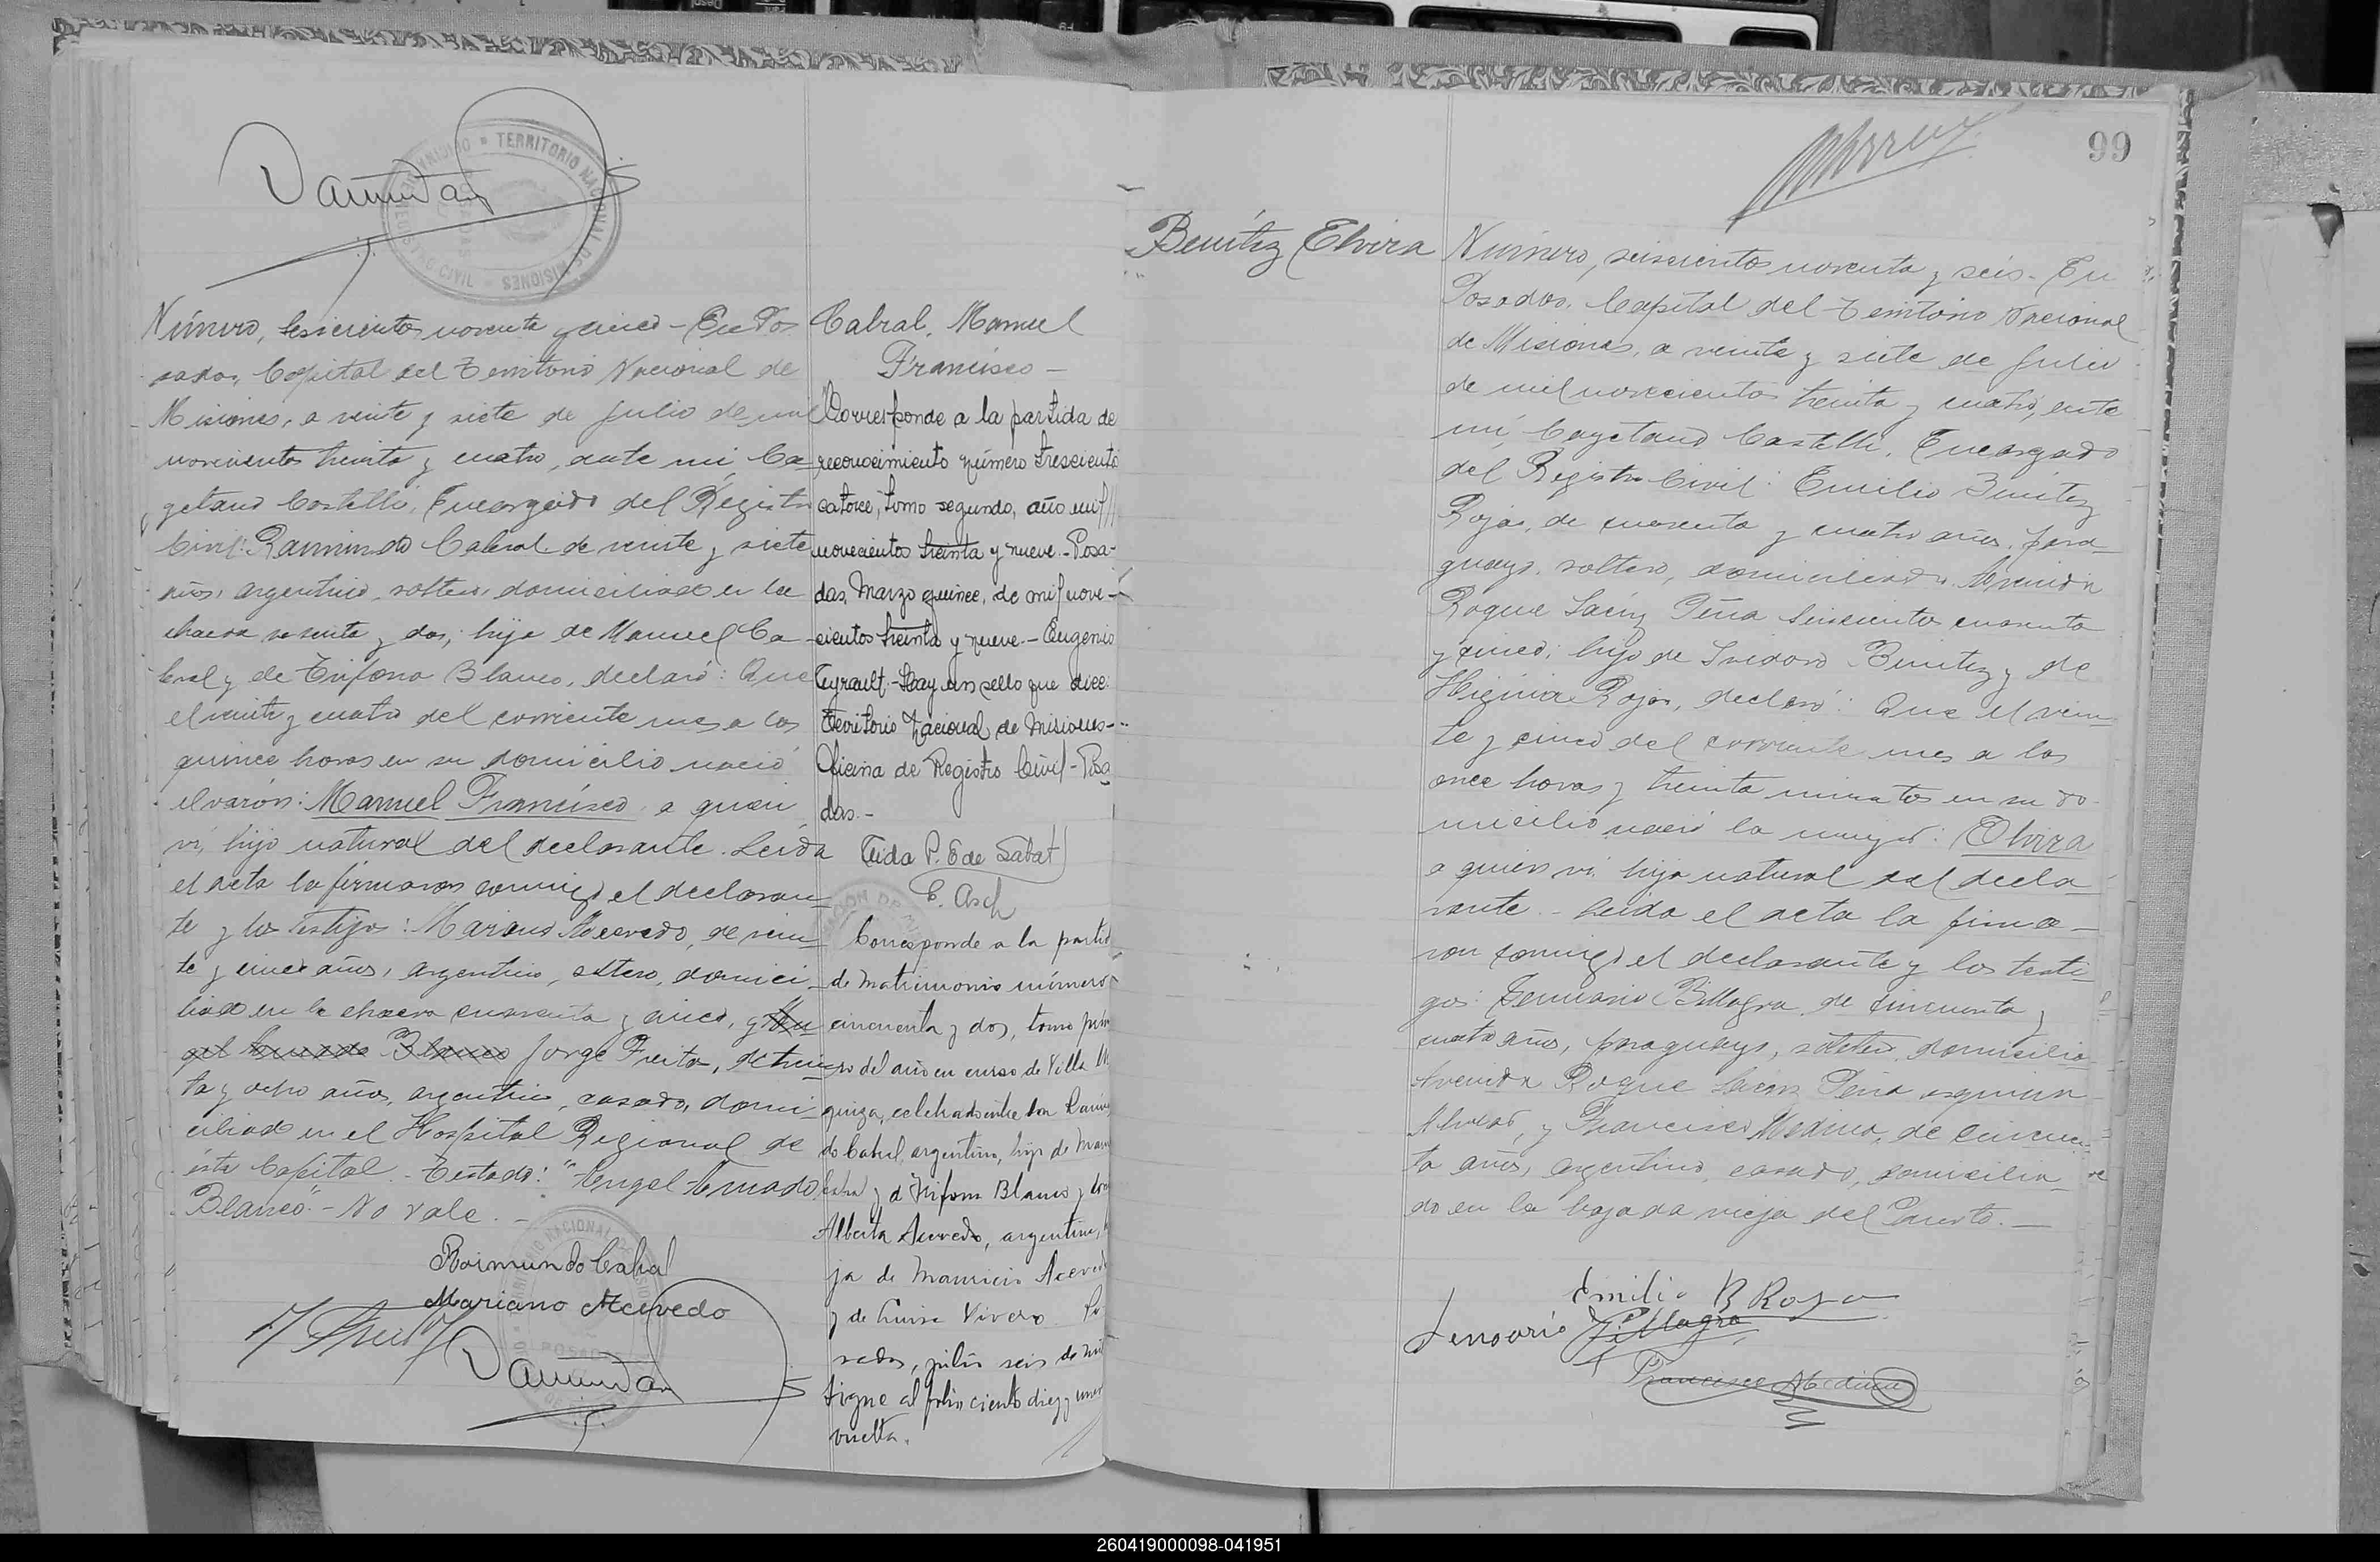 TERRITORIO NACIONAL DE MISIONES
Número, seiscientos noventa y cinco - En Po-
sadas, Capital del Territorio Nacional de
Misiones, a veinte y siete de Julio de mil
novecientos treinta y cuatro, ante mi, Ca-
yetano Castelli, Encargado del Registro
Civil: Raimundo Cabral de veinte y siete
años, argentino, soltero, domiciliado en la
chacra sesenta y dos; hijo de Manuel Ca-
bral y de Trifona Blanco, declaró: Que
el veinte y cuatro del corriente mes a las
quince horas en su domicilio nació
el varón: Manuel Francisco, a quien
vi, hijo natural del declarante. Leída
el acta la firmaron conmigo el declaran-
te y los testigos: Mariano Acevedo, de vein-
te y cinco años, argentino, soltero, domici-
liado en la chacra cuarenta y cinco, y An-
gel Amado Blanco Jorge Freita, de trein-
ta y ocho años, argentino, casado, domi-
ciliado en el Hospital Regional de
ésta Capital. - Testado: "Angel Amado
Blanco" - No vale. -
Raimundo Cabral
Mariano Acevedo
Cabral, Manuel
Francisco -
Corresponde a la partida de
reconocimiento número trescientos
catorce, tomo segundo, año mil
novecientos treinta y nueve. - Posa-
das, Marzo quince, de mil nove-
cientos treinta y nueve. - Eugenio
Teyrault - Hay un sello que dice:
Territorio Nacional de Misiones -
Oficina de Registro Civil - Posa
das. -
Corresponde a la partid
de matrimonio número
cincuenta y dos, tomo prim
ro del año en curso de Villa U
quiza, celebrado entre don Raimun
do Cabral, argentino, hijo de Man
Cabral y d Trifona Blanco y
Alberta Acevedo, argentina, h
ja de Mauricio Acevedo
y de Luisa Vivero. Po
sadas, julio seis de mil
sigue al folio ciento diez y nueve
vuelta.
99
Benítez Elvira
Número, seiscientos noventa y seis - En
Posadas, Capital del Territorio Nacional
de Misiones, a veinte y siete de Julio
de mil novecientos treinta y cuatro, ante
mi, Cayetano Castelli, Encargado
del Registro Civil: Emilio Benítez
Rojas, de cuarenta y cuatro años, para-
guayo, soltero, domiciliado Avenida
Roque Saenz Peña seiscientos cuarenta
y cinco; hijo de Isidoro Benítez y de
Higinia Rojas, declaró: Que el vein-
te y cinco del corriente mes a las
once horas y treinta minutos en su do-
micilio nació la mujer: Elvira
a quien vi, hija natural del decla
rante. - Leída el acta la firma-
ron conmigo el declarante y los testi-
gos: Genuario Billagra, de cincuenta y
cuatro años, paraguayo, soltero, domicilia-
Avenida Roque Saenz Peña esquina
Alvear, y Francisco Medina, de cincuen-
ta años, argentino, casado, domicilia-
do en la bajada vieja del Puerto. -
Emilio B Rojas
Jenoario Villagra
Francisco Medina
260419000098-041951